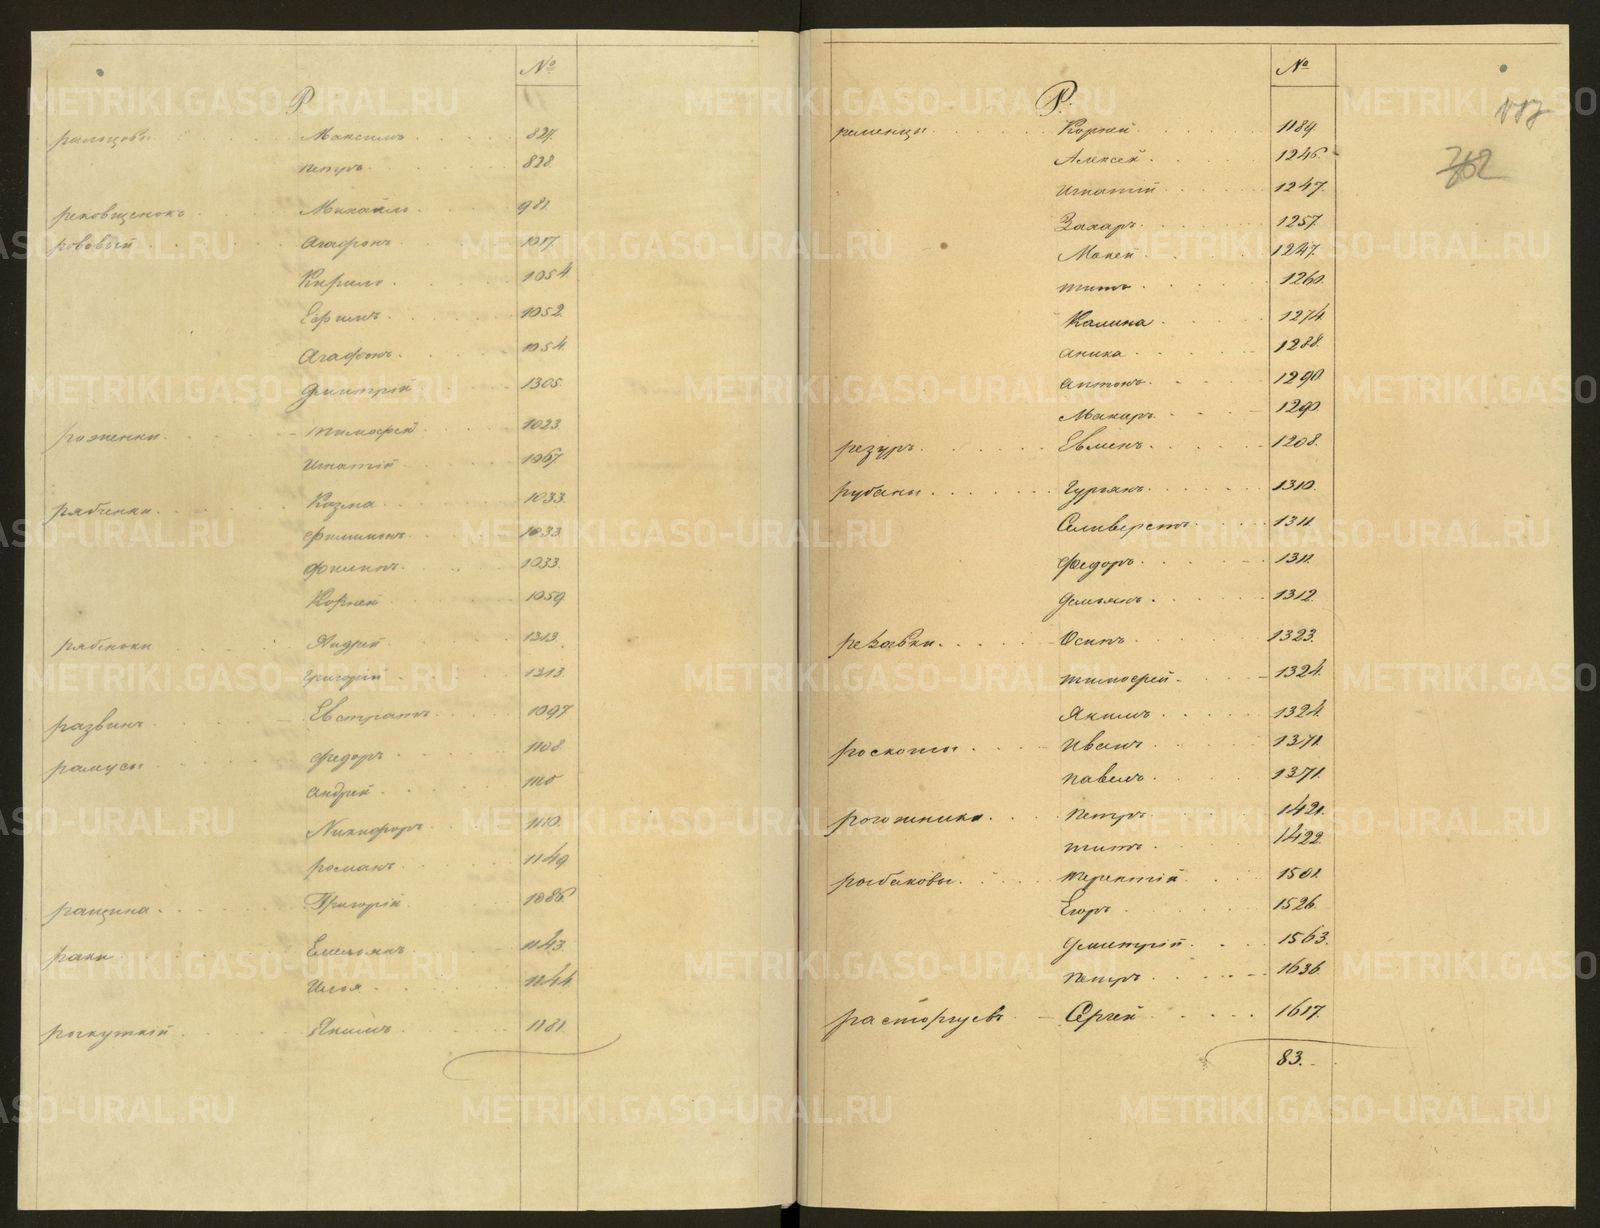 №
Р
Максимъ 827.
Петръ 828.
Михайло 981.
Роговый Агафонъ 1017.
Кирило 1054
Ефимъ 1052.
Агафонъ 1054
Дмитрій 1305.
Роженки Тимофей 1023.
Игнатій 1067
Рябченки Козма 1033.
Филимонъ 1033.
Филипъ 1033.
Корней 1059
Рябенки Андрей 1313.
Григорій 1313.
Развинъ Евстратъ 1097
Рамусы Федоръ 1108.
Андрей 1110
Никифоръ 1110.
Романъ 1149
Ращина Григорій 1086.
Раки Емельянъ 1143.
Илья 1144
Якимъ 1181.
№
Р.
Ременцы Корней 1189.
Алексей 1246.
Игнатій 1247.
Захаръ 1257.
Мокей 1247.
Титъ 1260.
Калина 1274.
Аника 1288.
Антонъ 1290.
Макаръ 1290.
Резуръ Евменъ 1208.
Рубаны Гурьянъ 1310.
Селиверстъ 1311.
Федоръ 1311.
Демьянъ 1312.
Осипъ 1323.
Тимофей 1324.
Якимъ 1324.
Роскоты Иванъ 1371.
Павелъ 1371.
Рогожники Петръ 1421.
Титъ 1422.
Рыбаковы Терентій 1501.
Егоръ 1526.
Дмитрій 1563.
Петръ 1636.
Расторгуевъ Сергей 1617.
83.
762
METRIKI.GASO-URAL.RU